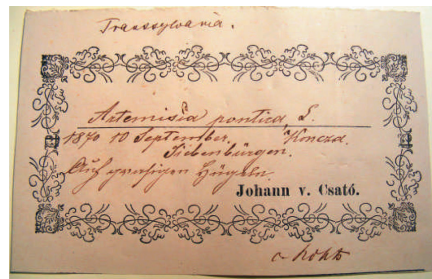 Transsylvania.
Artemisia pontica, L.
1870 10 September, Koncza.
Siebenbürgen.
Auf grasigen Hügeln.
Johann v. Csató.